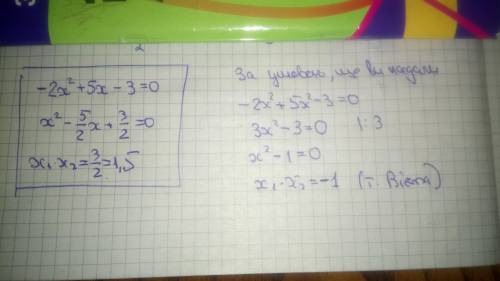 -2x² + 5x - 3 = 0
x² - 5/2 x + 3/2 = 0
x₁ x₂ = 3/2 = 1,5
За умовою, що ви надали
-2x² + 5x² - 3 = 0
3x² - 3 = 0 |: 3
x² - 1 = 0
x₁ · x₂ = -1 (т. Вієта)